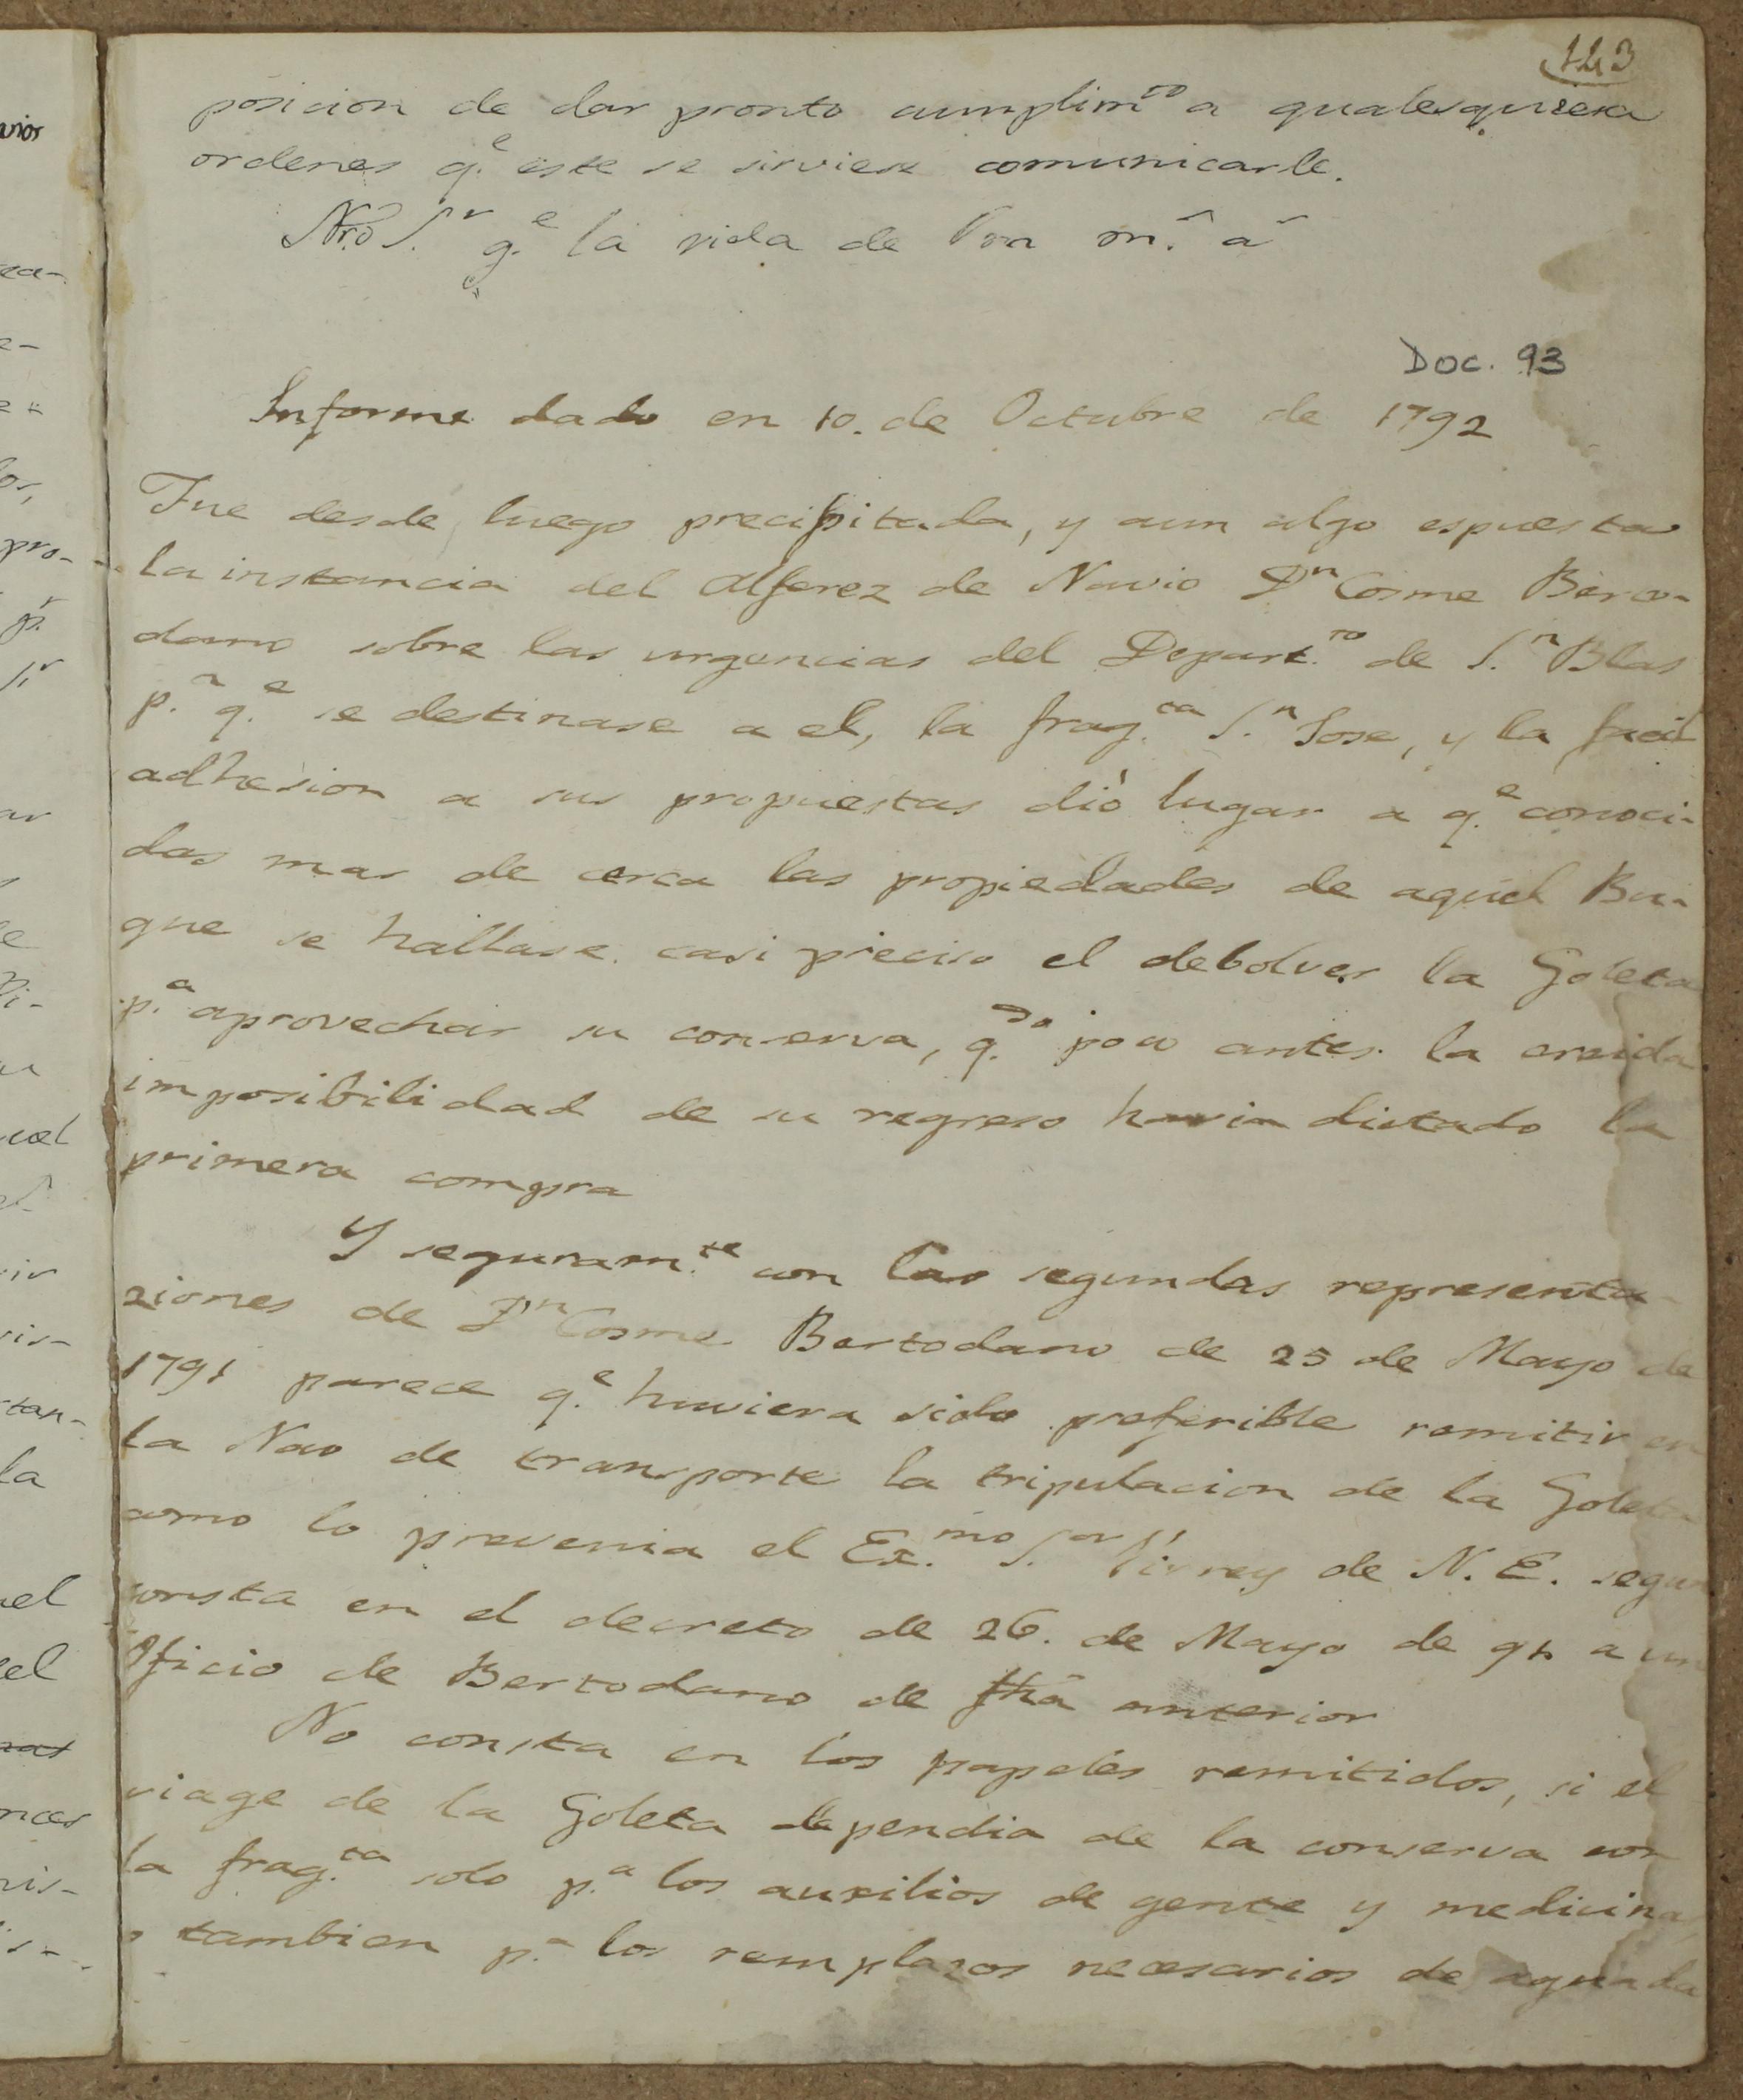 143
posicion de dar pronto cumplim.to a qualesquiera
ordenes q.e este se sirviese comunicarle.
Nrô S.r g.e la vida de Vm m.s a.s
Doc. 93
Informe dado en 10. de Octubre de 1792
Fue desde luego precipitada, y aun algo espuesta
la instancia del Alferez de Navio Dn Cosme Berto-
dano sobre las urgencias del Depart.to de S.n Blas
p.a q.e se destinase a el, la frag.ta S.n Jose, y la facil
adhesion a sus propuestas dió lugar a q.e conoci-
das mas de cerca las propiedades de aquel Bu-
que se hallase casi preciso el debolver la Goleta
p.a aprovechar su conserva, q.do poco antes la creida
imposibilidad de su regreso havia dictado la
primera compra
Y seguram.te con las segundas representa-
ziones de Dn Cosme Bertodano de 25 de Mayo de
1791 parece q.e huviera sido preferible remitir en
la Nao de transporte la tripulacion de la Goleta
como lo prevenia el Ex.mo S.or Virrey de N. E. segun
consta en el decreto de 26. de Mayo de 91 a un
Oficio de Bertodano de fhâ anterior
No consta en los papeles remitidos, si el
viage de la Goleta dependia de la conserva con
la frag.ta solo p.a los auxilios de gente y medicina,
o tambien p.a los remplazos necesarios de aguada